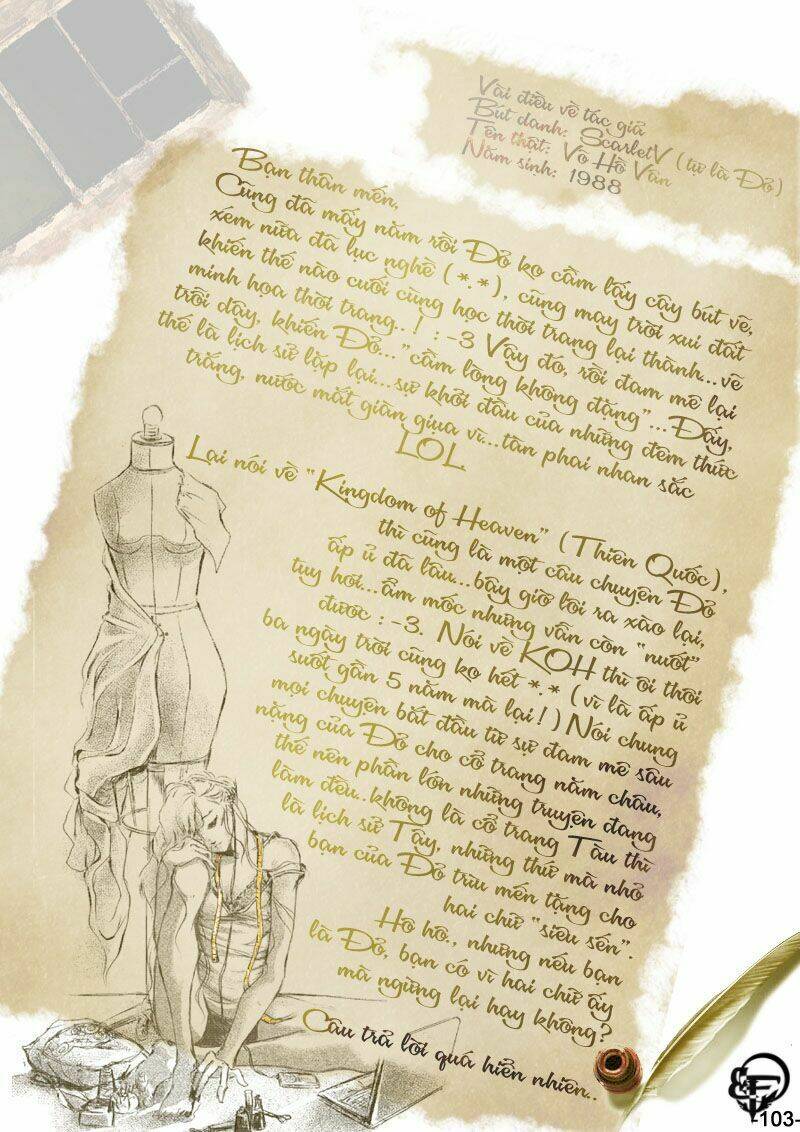 Vài điều về tác giả
Bút danh: ScarletV (tự là Đỏ)
Tên thật: Võ Hồ Vân
Năm sinh: 1988
Bạn thân mến,
Cũng đã mấy năm rồi Đỏ ko cầm lấy cây bút vẽ,
xém nữa đã lục nghề (*.*), cũng may trời xui đất
khiến thế nào cuối cùng học thời trang lại thành...vẽ
minh họa thời trang..! :-3 Vậy đó, rồi đam mê lại
trỗi dậy, khiến Đỏ..."cầm lòng không đặng"... Đấy,
thế là lịch sử lặp lại...sự khởi đầu của những đêm thức
trắng, nước mắt giàn giụa vì...tàn phai nhan sắc
LOL
Lại nói về "Kingdom of Heaven" (Thiên Quốc),
thì cũng là một câu chuyện Đỏ
ấp ủ đã lâu...bây giờ lôi ra xào lại,
tuy hơi...ẩm mốc nhưng vẫn còn "nuốt"
được :-3. Nói về KOH thì ôi thôi
ba ngày trời cũng ko hết *.* (vì là ấp ủ
suốt gần 5 năm mà lại!) Nói chung
mọi chuyện bắt đầu từ sự đam mê sâu
nặng của Đỏ cho cổ trang năm châu,
thế nên phần lớn những truyện đang
làm đều..không là cổ trang Tàu thì
là lịch sử Tây, những thứ mà nhỏ
bạn của Đỏ trìu mến tặng cho
hai chữ "siêu sến".
Hô hô., nhưng nếu bạn
là Đỏ, bạn có vì hai chữ ấy
mà ngừng lại hay không?
Câu trả lời quá hiển nhiên..
-103-